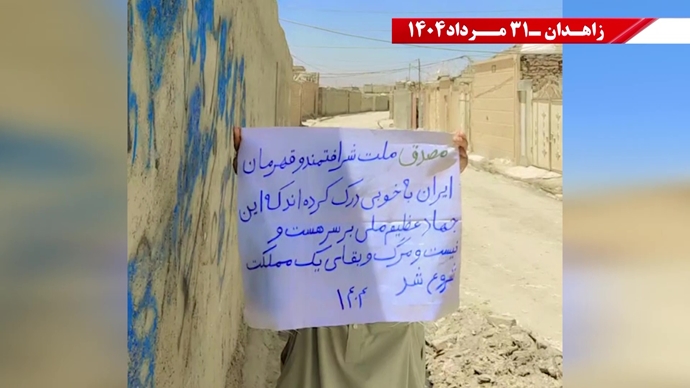 زاهدان ـ۳۱ مـــرداد۱۴۰۴
مصدق ملت شرافتمند و قهرمان
ایران به خوبی درک کرده اند که این
جهاد عظیم ملی بر سر هست و
نیست و مرگ و بقای یک مملکت
شروع شد
۱۴۰۴